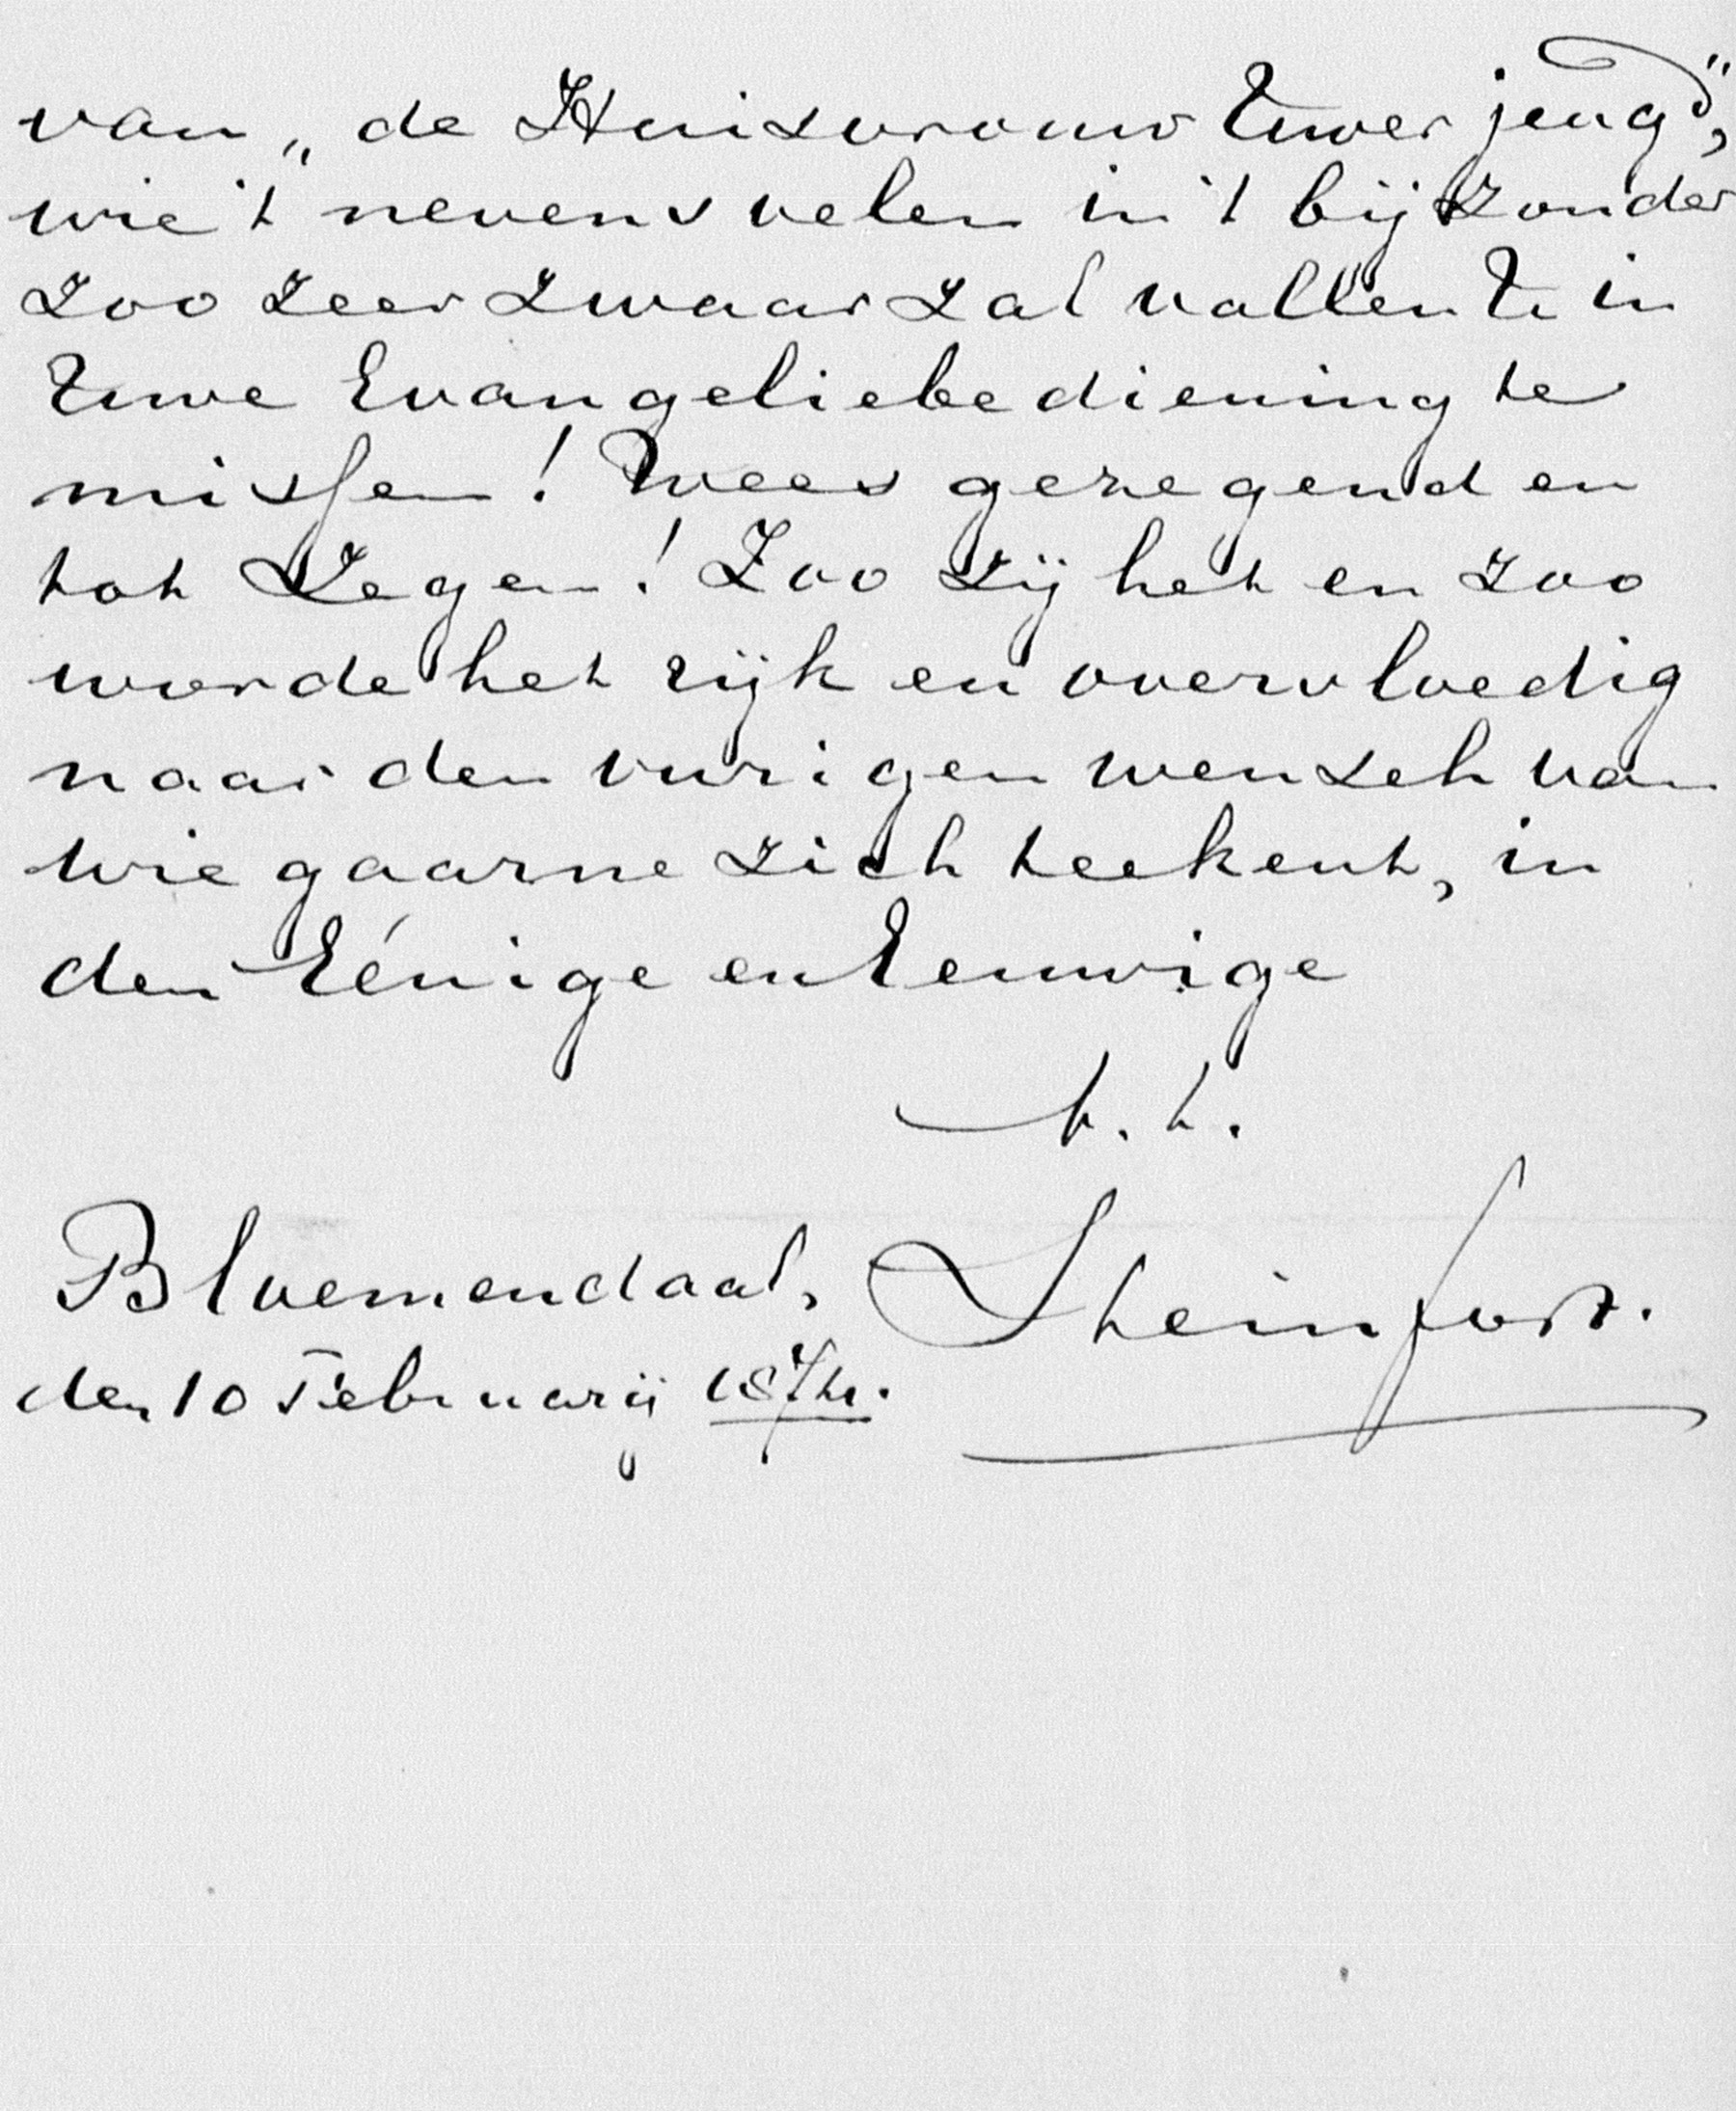 van „de Huisvrouw Uwer jeugd”,
wie 't nevens velen in 't bijzonder
zoo zeer zwaar zal vallen U in
Uwe Evangeliebediening te
missen! Wees gezegend en
tot Zegen! Zoo zij het en zoo
worde het rijk en overvloedig
naar den vurigen wensch van
wie gaarne zich teekent, in
den Eénige en Eeuwige
t. t.
Bloemendaal,
den 10 Februarij